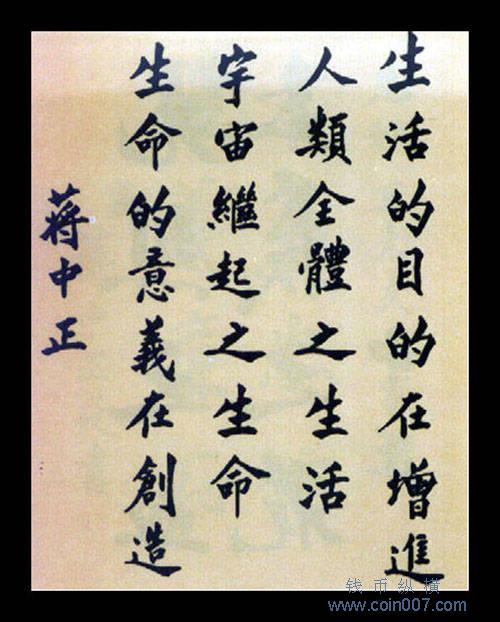 生活的目的在增進
人類全體之生活
生命的意義在創造
宇宙繼起之生命
蔣中正
钱币纵横
www.coin007.com